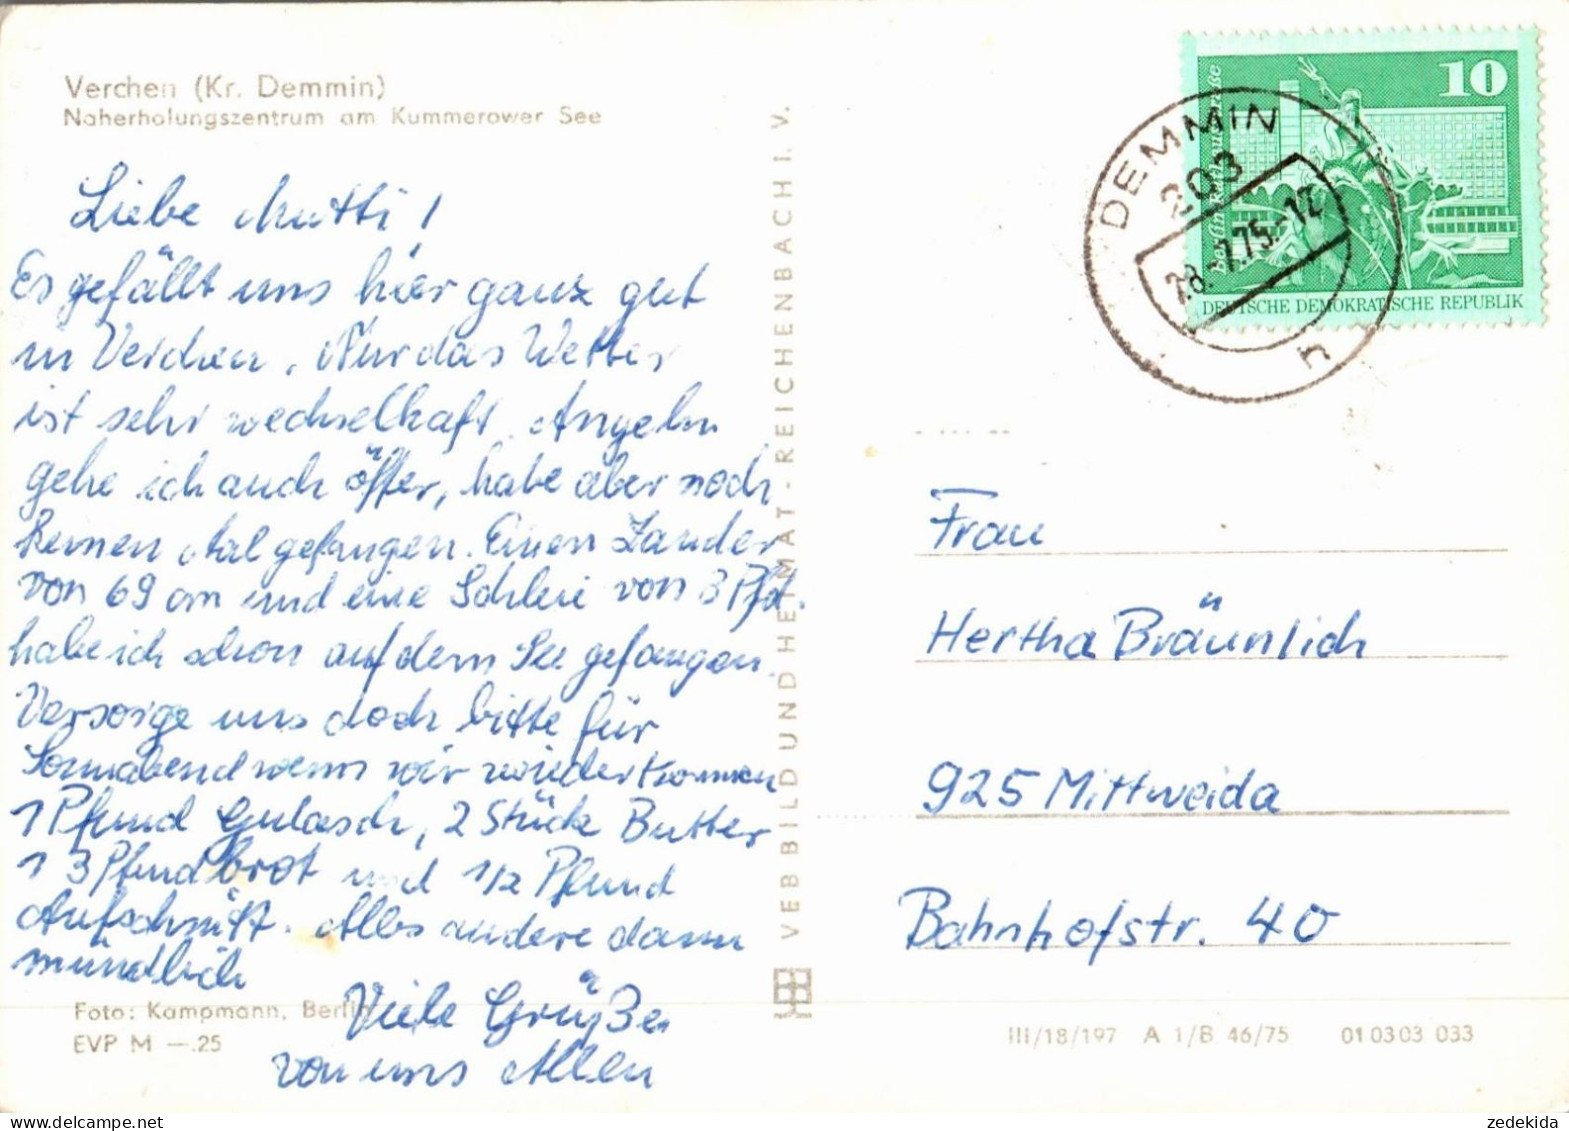 Verchen (Kr. Demmin)
Naherholungszentrum am Kummerower See
Liebe Mutti!
Es gefällt uns hier ganz gut
in Verchen. Nur das Wetter
ist sehr wechselhaft. Angeln
gehe ich auch öfter, habe aber noch
keinen Aal gefangen. Einen Zander
von 69 cm und eine Schleie von 3 Pfd.
habe ich schon auf dem See gefangen.
Versorge uns doch bitte für
Sonnabend wenn wir wiederkommen
1 Pfund Gulasch, 2 Stücke Butter
1 3 Pfundbrot und 1/2 Pfund
Aufschnitt. Alles andere dann
mündlich
Viele Grüße
von uns Allen
Foto: Kampmann, Berlin
EVP M —.25
VEB BILD UND HEIMAT · REICHENBACH I. V.
10
DEUTSCHE DEMOKRATISCHE REPUBLIK
DEMMIN
203
28.-7.75.-12
h
Frau
Hertha Bräunlich
925 Mittweida
Bahnhofstr. 40
III/18/197 A 1/B 46/75 01 03 03 033
zedekida